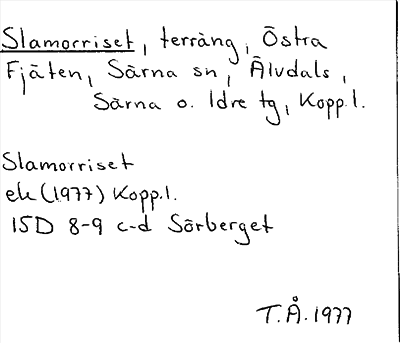 Slamorriset, terräng, Östra
Fjäten, Särna sn, Älvdals,
Särna o. Idre tg, Kopp.l.
Slamorriset
ek (1977) Kopp.l.
15D 8-9 c-d Sörberget
T.Å. 1977